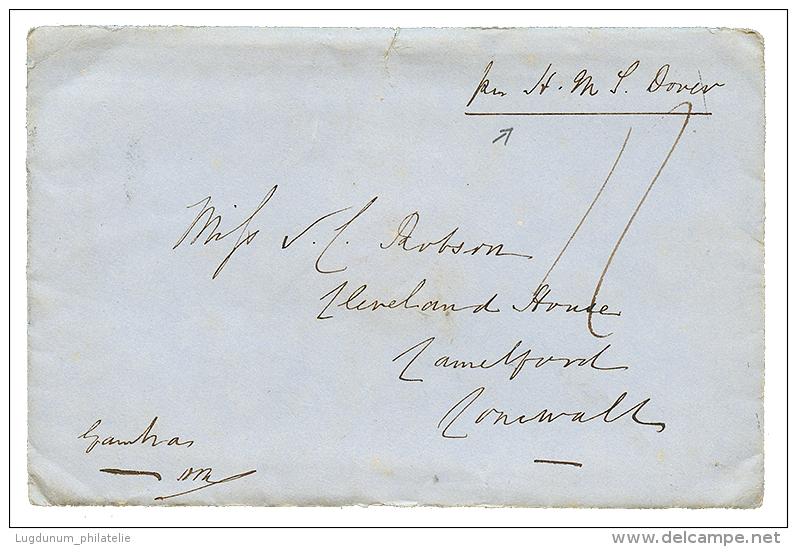 per H. M. S. Dover
Miss S. C. Robson
Cleveland House
Camelford
Cornwall
Gambia
Lugdunum_philatelie
delcampe.net